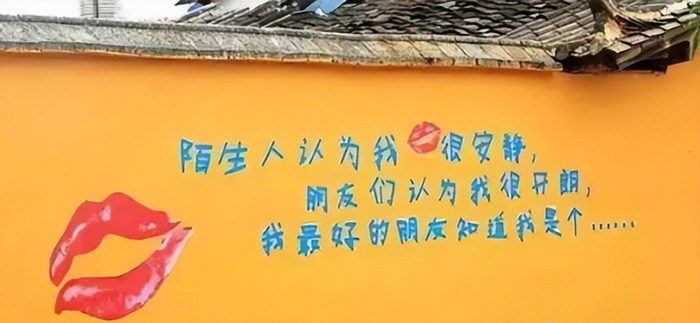 陌生人认为我很安静，
朋友们认为我很开朗，
我最好的朋友知道我是个......